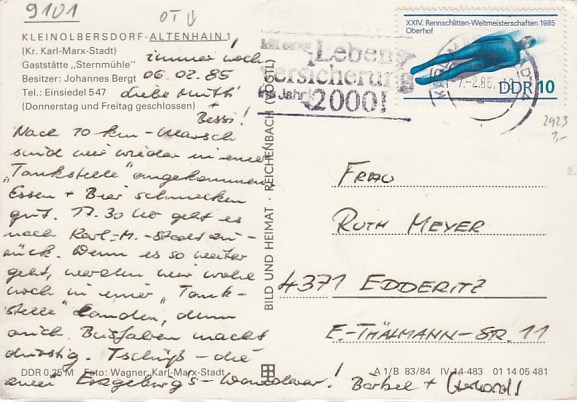 9101
OT
KLEINOLBERSDORF-ALTENHAIN
(Kr. Karl-Marx-Stadt)
Gaststätte „Sternmühle"
Besitzer: Johannes Bergt
Tel.: Einsiedel 547
(Donnerstag und Freitag geschlossen)
immer noch!
06.02.85
Liebe Mutti
+ Bessi!
Nach 10 km-Marsch
sind wir wieder in einer
„Tankstelle" angekommen
Essen + Bier schmecken
gut. 17.30 Uhr geht es
nach Karl-M.-Stadt zu-
rück. Wenn es so weiter
geht, werden wir wohl
noch in einer „Tank-
stelle" landen, denn
auch Busfahren macht
durstig. Tschüß - die
zwei Erzgebirgs-Wanderer!
Bärbel + Gerhard
DDR 0,25 M Foto: Wagner, Karl-Marx-Stadt
BILD UND HEIMAT · REICHENBACH (VOGTL)
A 1/B 83/84 IV-14-483 01 14 05 481
Leben
versicherung
ins Jahr
2000!
-7.-2.85
XXIV. Rennschlitten-Weltmeisterschaften 1985
Oberhof
DDR 10
2923
FRAU
RUTH MEYER
4371 EDDERITZ
E.-THÄLMANN-STR. 11